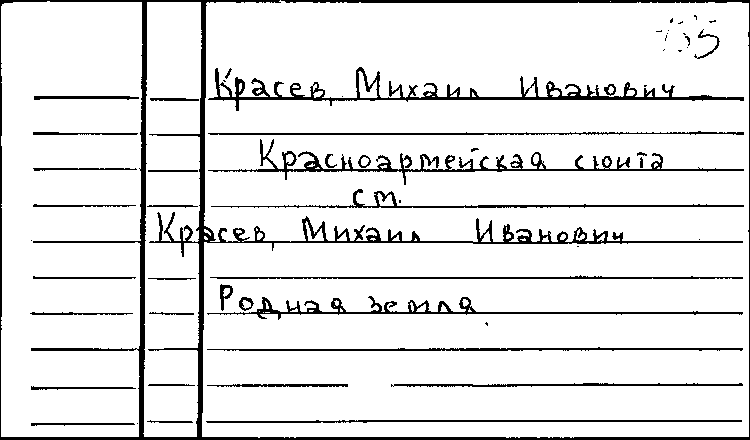 Красев, Михаил Иванович
Красноармейская сюита
см.
Красев, Михаил Иванович
Родная земля.